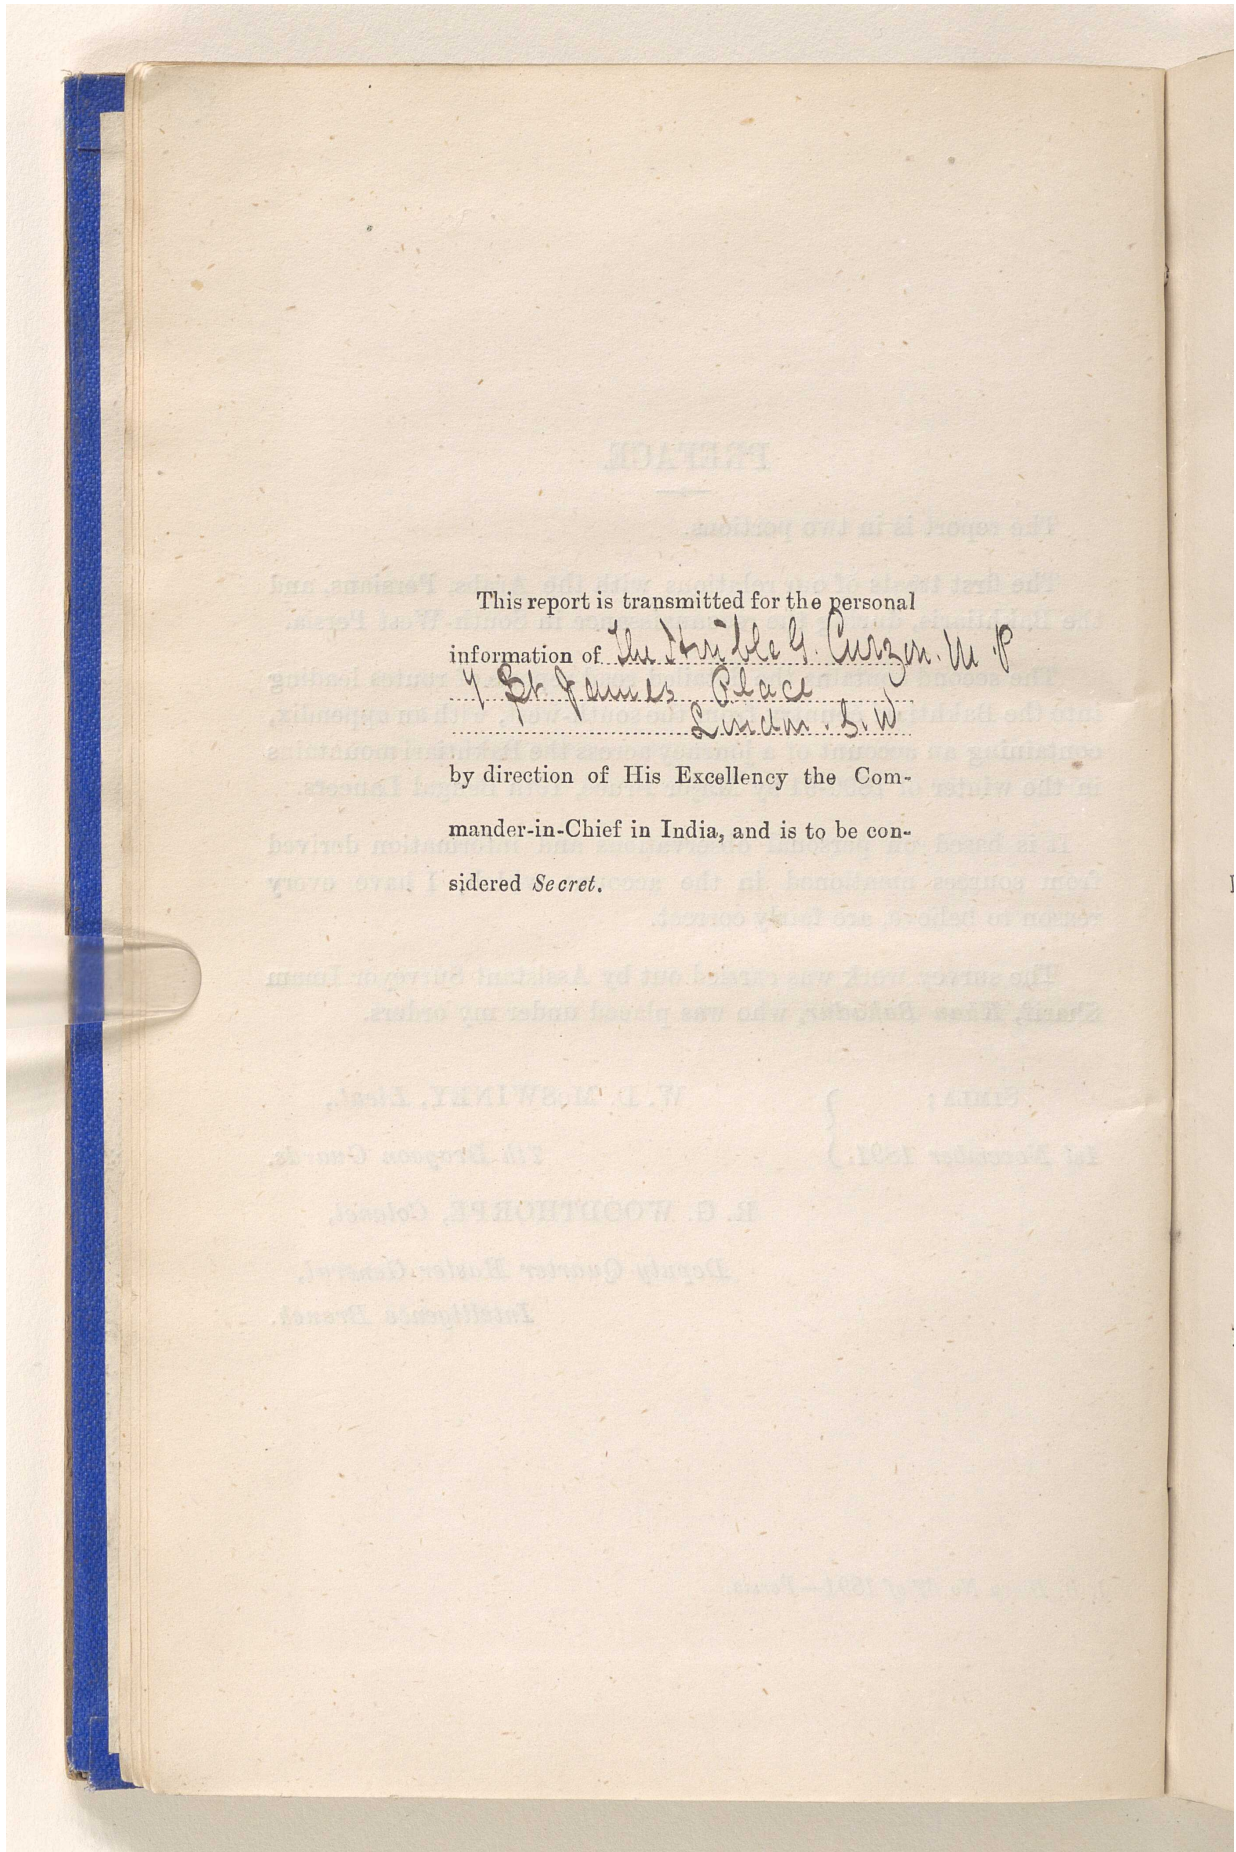 This report is transmitted for the personal
information of The Honble G. Curzon. M P
St. James Place
London. S. W
by direction of His Excellency the Com-
mander-in-Chief in India, and is to be con-
sidered Secret.